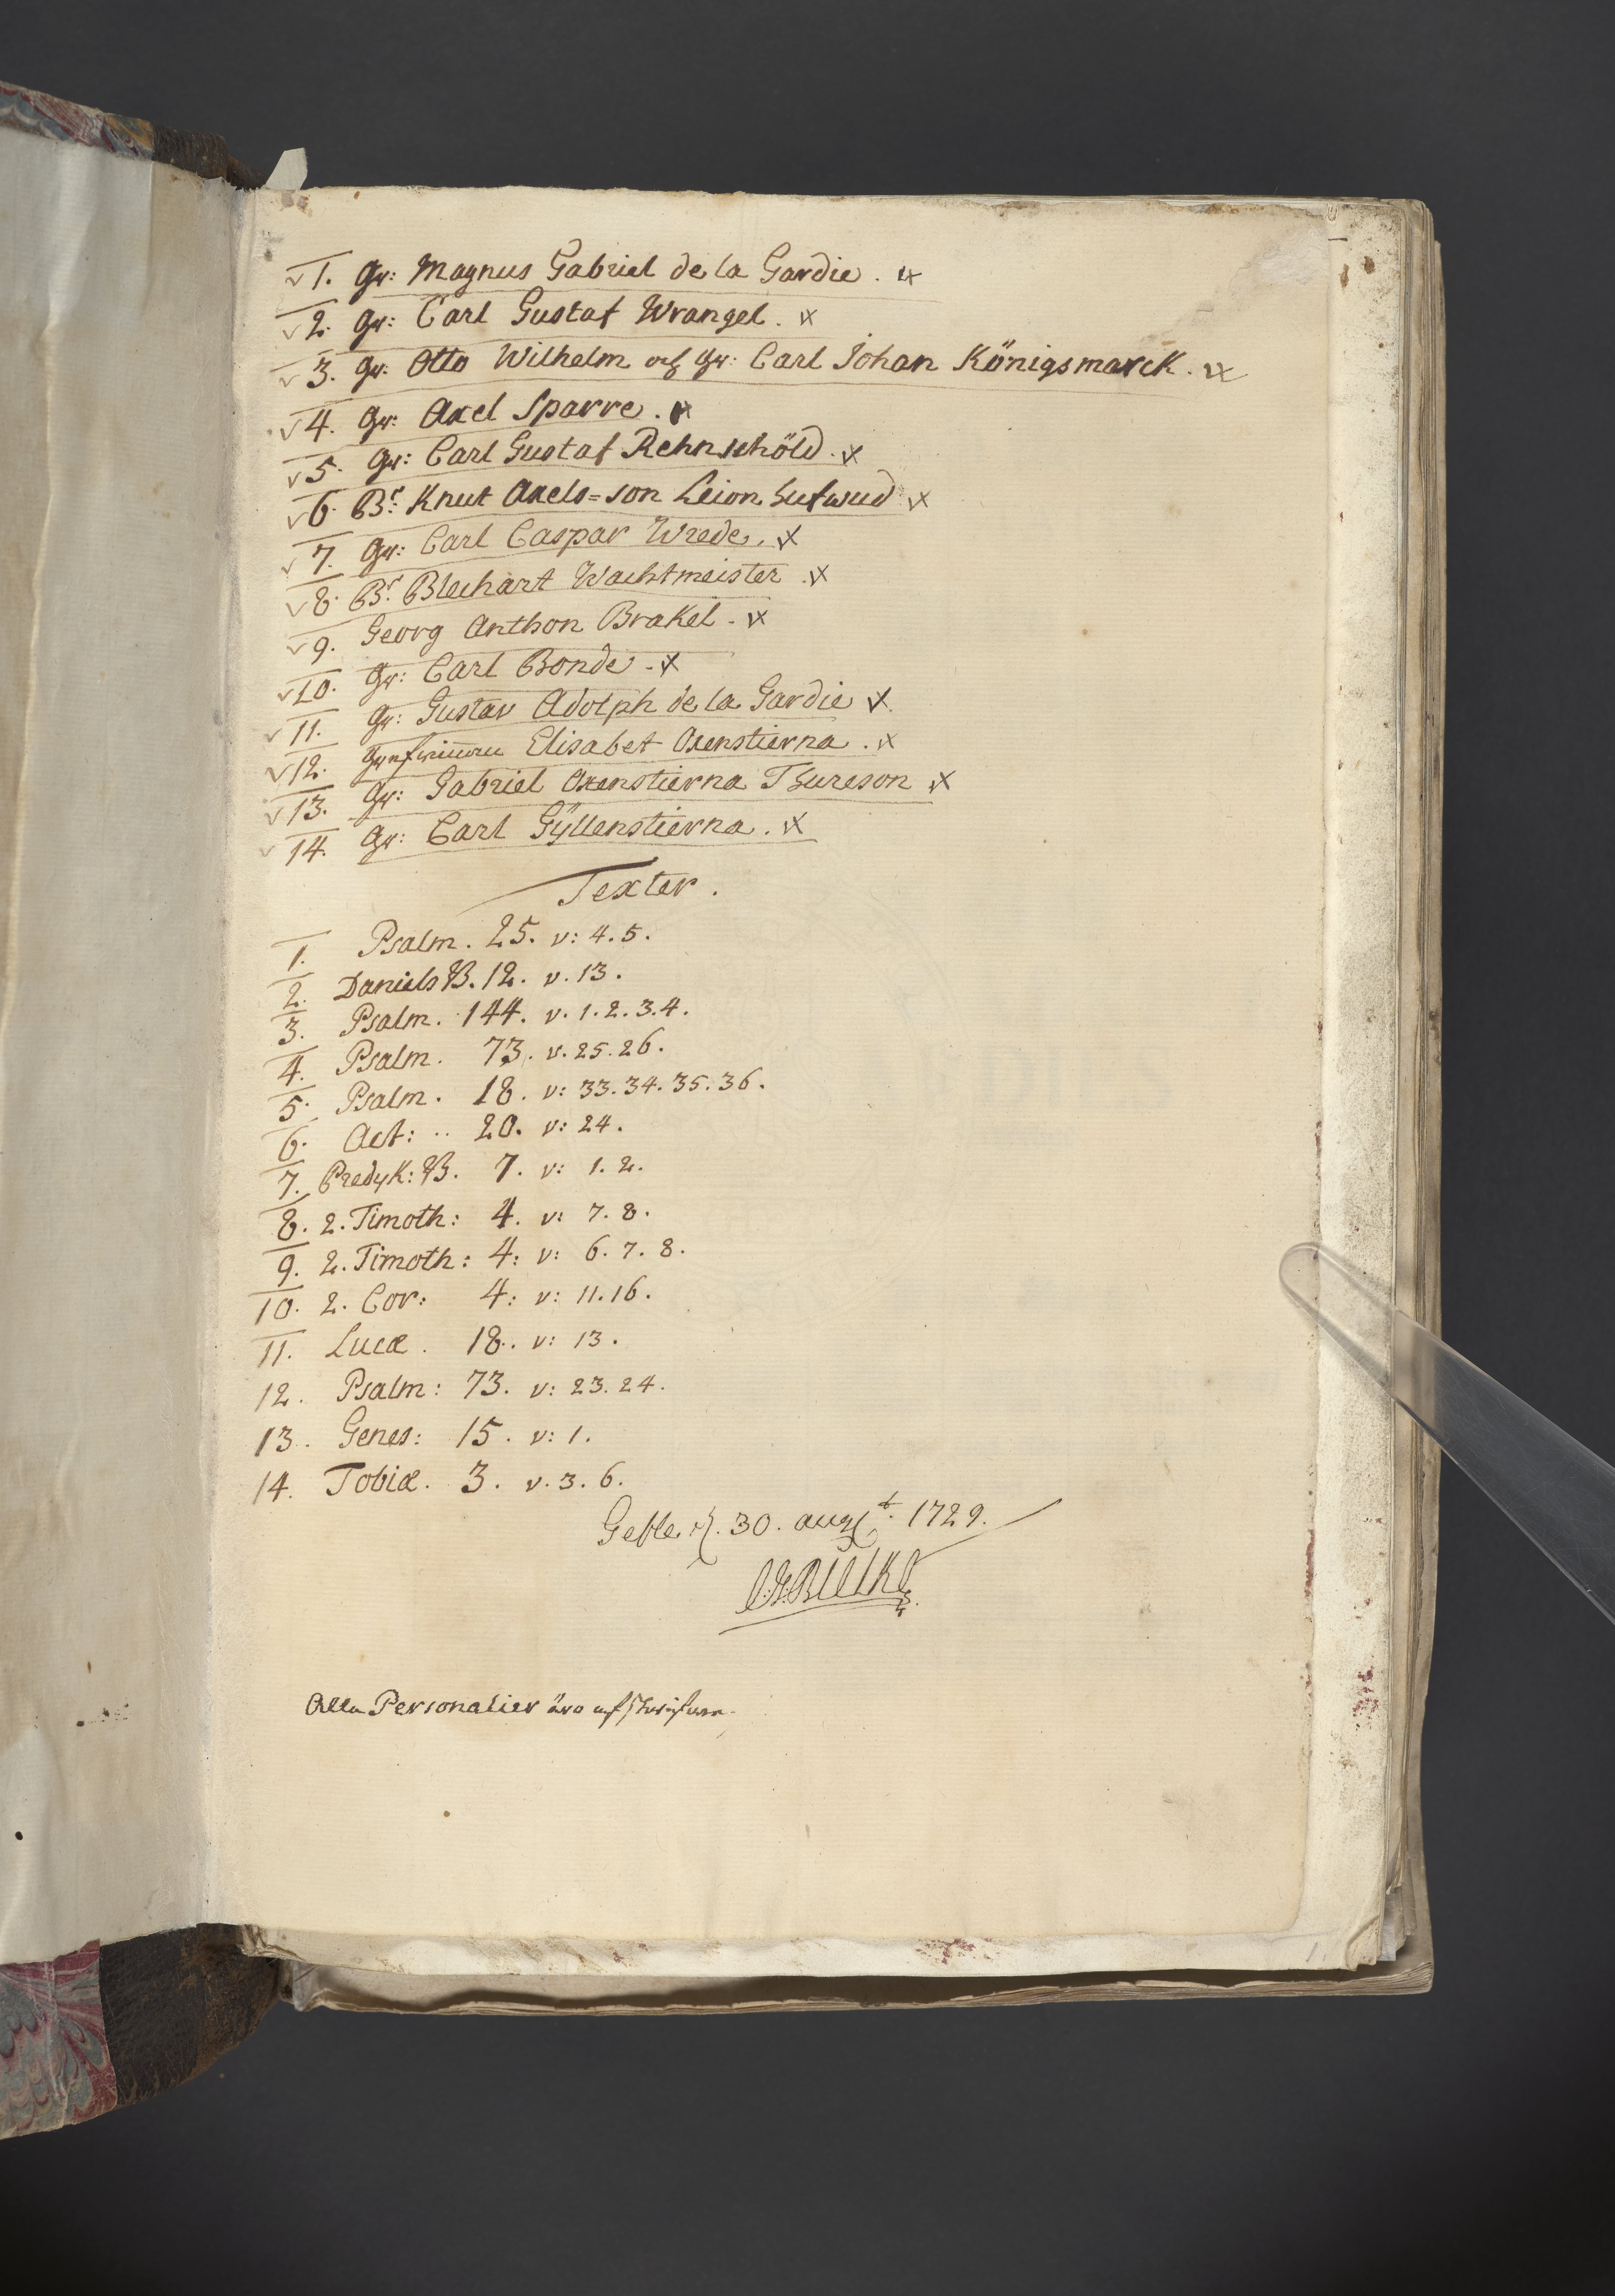 √ 1. Gr: Magnus Gabriel de la Gardie. √x
√ 2. Gr: Carl Gustaf Wrangel. √x
√ 3. Gr: Otto Wilhelm och Gr: Carl Johan Königsmarck. √x
√ 4. Gr: Axel Sparre. x
√ 5. Gr: Carl Gustaf Rehnschöld. √x
√ 6. Br: Knut Axels=son Leion hufwud √x
√ 7. Gr: Carl Caspar Wrede. √x
√ 8. Br: Blechart Wachtmeister. √x
√ 9. Georg Anthon Brakel. √x
√ 10. Gr: Carl Bonde. √x
√ 11. Gr: Gustav Adolph de la Gardie √x.
√ 12. Grefwinnan Elisabet Oxenstierna. √x
√ 13. Gr: Gabriel Oxenstierna Thureson √x
√ 14. Gr: Carl Gÿllenstierna. √x
Texter.
1. Psalm. 25. v: 4. 5.
2. Daniels B. 12. v. 13.
3. Psalm. 144. v. 1. 2. 3. 4.
4. Psalm. 73. v. 25. 26.
5. Psalm. 18. v: 33. 34. 35. 36.
6. Act: .. 20. v: 24.
7. Predyk: B. 7. v: 1. 2.
8. 2. Timoth: 4. v: 7. 8.
9. 2. Timoth: 4: v: 6. 7. 8.
10. 2. Cor: 4: v: 11. 16.
11. Lucæ. 18. v: 13.
12. Psalm: 73. v: 23. 24.
13. Genes: 15. v: 1.
14. Tobiæ. 3. v. 3. 6.
Gefle d. 30. augt. 1729.
Bielke
Alla Personalier äro afskrifwne.